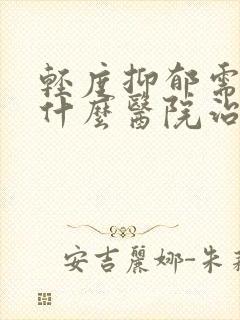 輕度抑郁需
什麼醫院治
安吉麗娜-朱